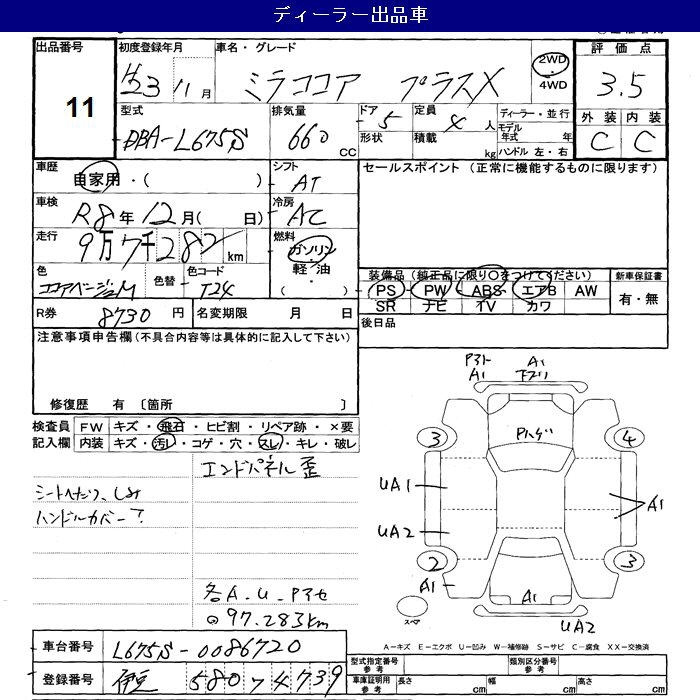 ディーラー出品車
出品番号 11
初度登録年月 H23 11月
車名・グレード ミラココア プラスX
2WD・4WD
評価点 3.5
外装 内装
C C
型式 DBA-L675S
排気量 660 CC
ドア 5
形状
定員 4人
積載 kg
ディーラー・並行
モデル年式 年
ハンドル 左・右
車歴 自家用・( )
シフト AT
セールスポイント (正常に機能するものに限ります)
車検 R8年12月( 日)
冷房 AC
走行 9万7千282 km
燃料 ガソリン・軽油
( )
色 ココアベージュM
色替
色コード T24
装備品 (純正品に限り○をつけてください)
新車保証書
PS PW ABS エアB AW
SR ナビ TV カワ
有・無
R券 8730円
名変期限 月 日
後日品
注意事項申告欄 (不具合内容等は具体的に記入して下さい)
修復歴 有 〔箇所 〕
検査員記入欄
FW キズ・飛石・ヒビ割・リペア跡・×要
内装 キズ・汚レ・コゲ・穴・スレ・キレ・破レ
エンドパネル歪
シートヘタリ、シミ
ハンドルカバー下
各A.U.Pヌセ
◎97.283km
Pヌケ
A1
A1
下ズリ
Pハゲ
3
4
UA1
A1
UA2
2
3
A1
A1
スペア
UA2
A-キズ E-エクボ U-凹み W-補修跡 S-サビ C-腐食 XX-交換済
車台番号 L675S-0086720
登録番号 伊豆 580 フ 4739
型式指定番号 参考
類別区分番号 参考
車庫証明用 参考
長さ cm
幅 cm
高さ cm